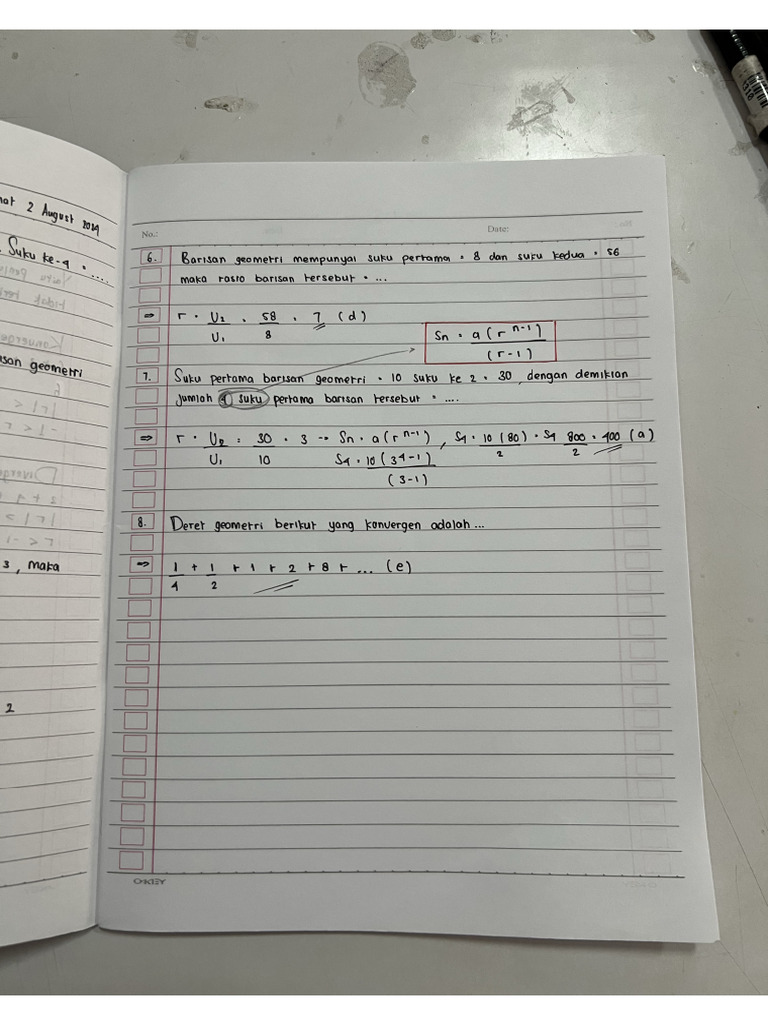 mat 2 August 2024
Suku ke-4 = ....
san geometri
3, maka
2
No.:
Date:
6. Barisan geometri mempunyai suku pertama = 8 dan suku kedua = 56
maka rasio barisan tersebut = ...
⇒ r = U2 = 58 = 7 (d)
U1 8
Sn = a(r^n-1)
(r-1)
7. Suku pertama barisan geometri = 10 suku ke 2 = 30, dengan demikian
jumlah 4 suku pertama barisan tersebut = ....
⇒ r = U2 = 30 = 3 → Sn = a(r^n-1), S4 = 10(80) = S4 800 = 400 (a)
U1 10 S4 = 10(3^4-1) 2 2
(3-1)
8. Deret geometri berikut yang konvergen adalah ...
⇒ 1 + 1 + 1 + 2 + 8 + ... (e)
4 2
OKEY